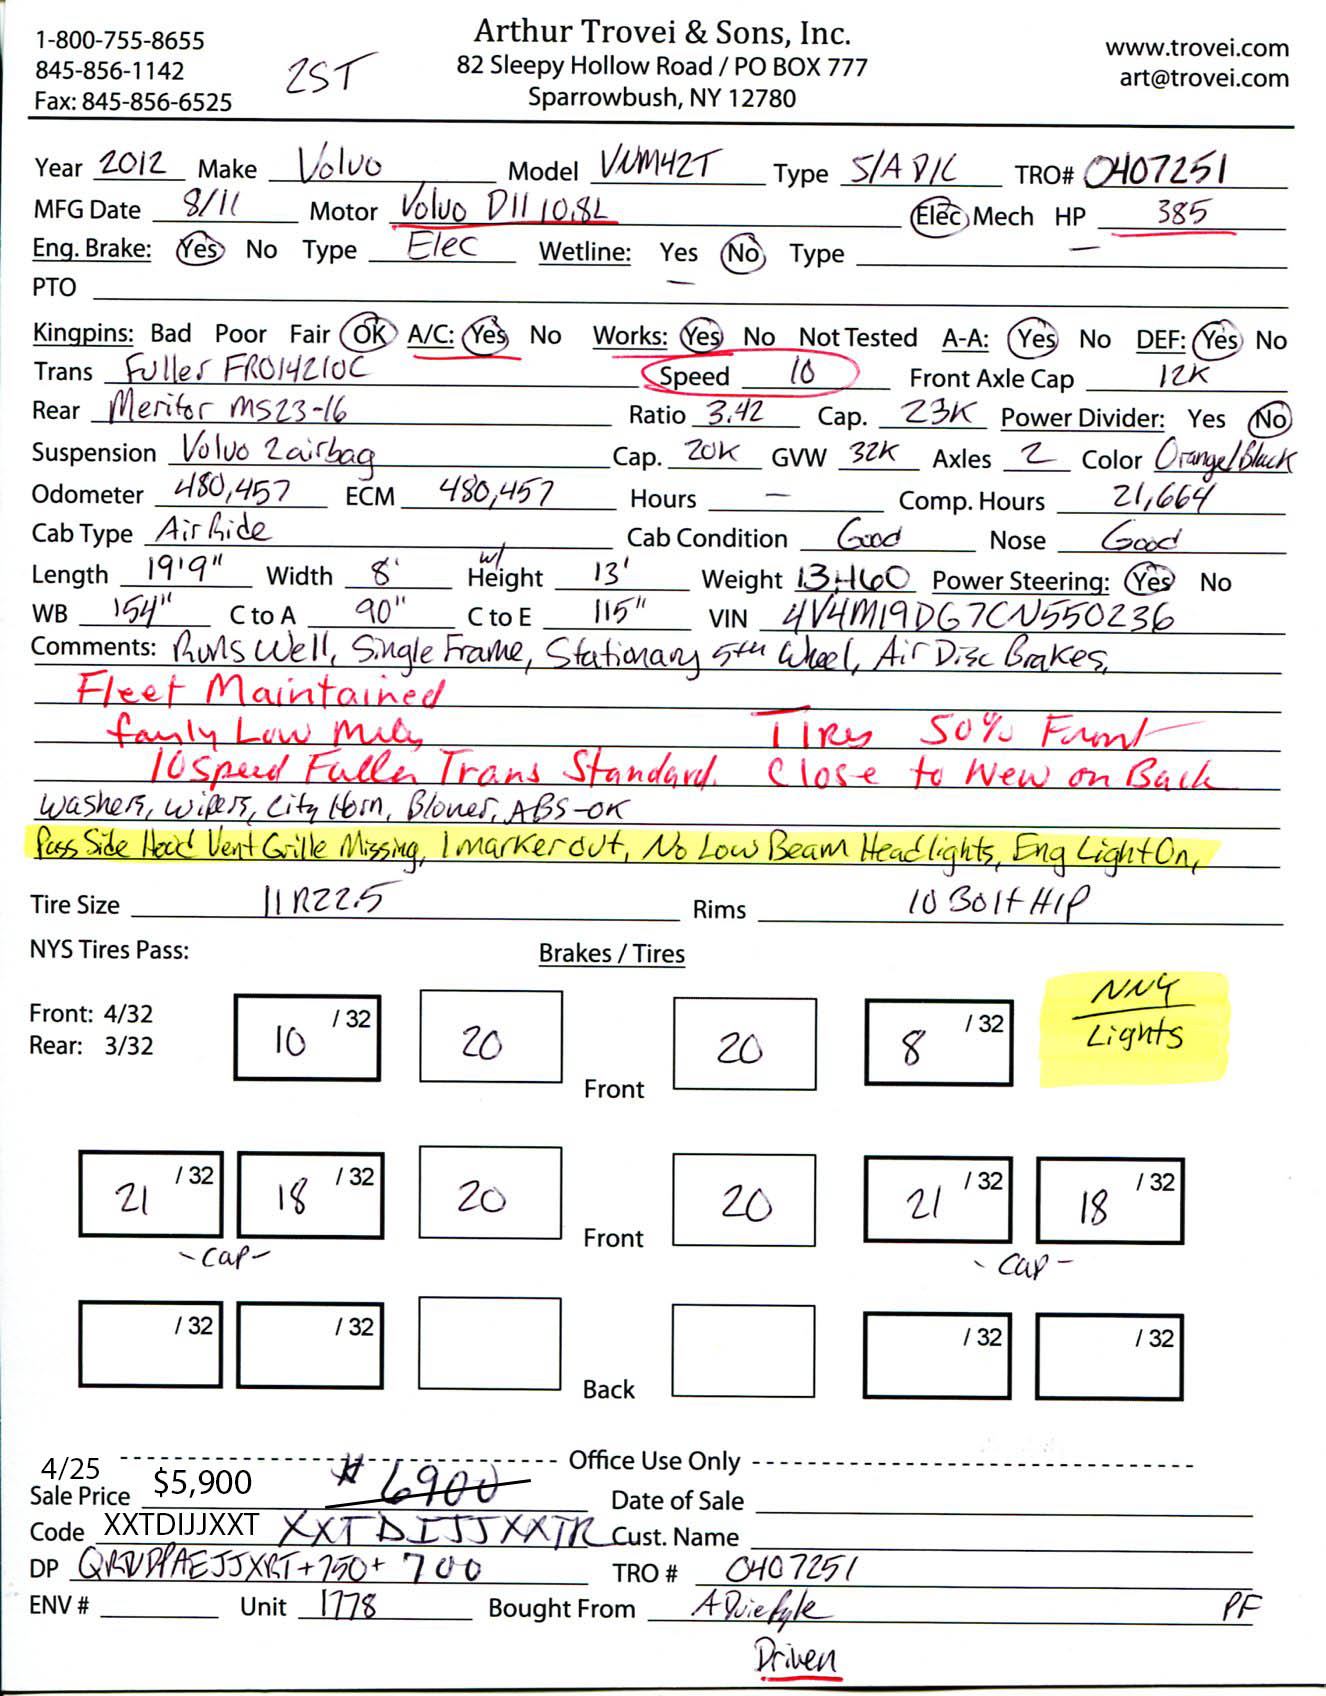 Arthur Trovei & Sons, Inc.
1-800-755-8655 82 Sleepy Hollow Road / PO BOX 777 www.trovei.com
845-856-1142 2ST Sparrowbush, NY 12780 art@trovei.com
Fax: 845-856-6525
Year 2012 Make Volvo Model VNM42T Type S/A D/C TRO# 0407251
MFG Date 8/11 Motor Volvo D11 10.8L Elec Mech HP 385
Eng. Brake: Yes No Type Elec Wetline: Yes No Type —
PTO —
Kingpins: Bad Poor Fair OK A/C: Yes No Works: Yes No Not Tested A-A: Yes No DEF: Yes No
Trans Fuller FRO14210C Speed 10 Front Axle Cap 12K
Rear Meritor MS23-16 Ratio 3.42 Cap. 23K Power Divider: Yes No
Suspension Volvo 2airbag Cap. 20K GVW 32K Axles 2 Color Orange/Black
Odometer 480,457 ECM 480,457 Hours — Comp. Hours 21,664
Cab Type Air Ride Cab Condition Good Nose Good
Length 19'9" Width 8' w/ Height 13' Weight 13,460 Power Steering: Yes No
WB 154" C to A 90" C to E 115" VIN 4V4M19DG7CN550236
Comments: Runs Well, Single Frame, Stationary 5th Wheel, Air Disc Brakes,
Fleet Maintained
fairly Low Miles Tires 50% Front
10 Speed Fuller Trans Standard. Close to New on Back
Washers, Wipers, City Horn, Blower, ABS-OK
Pass Side Hood Vent Grille Missing, 1 marker out, No Low Beam Headlights, Eng Light On,
Tire Size 11R22.5 Rims 10 Bolt H/P
NYS Tires Pass: Brakes / Tires
Front: 4/32 10 /32 20 Front 20 8 /32 NNY
Rear: 3/32 Lights
21 /32 18 /32 20 Front 20 21 /32 18 /32
-Cap- -Cap-
/32 /32 Back /32 /32
Office Use Only
4/25
Sale Price $5,900 #6900 Date of Sale
Code XXTDIJJXXT XXTDIJJXXTR Cust. Name
DP +750+700 TRO # 0407251
ENV # Unit 1778 Bought From PF
Driven